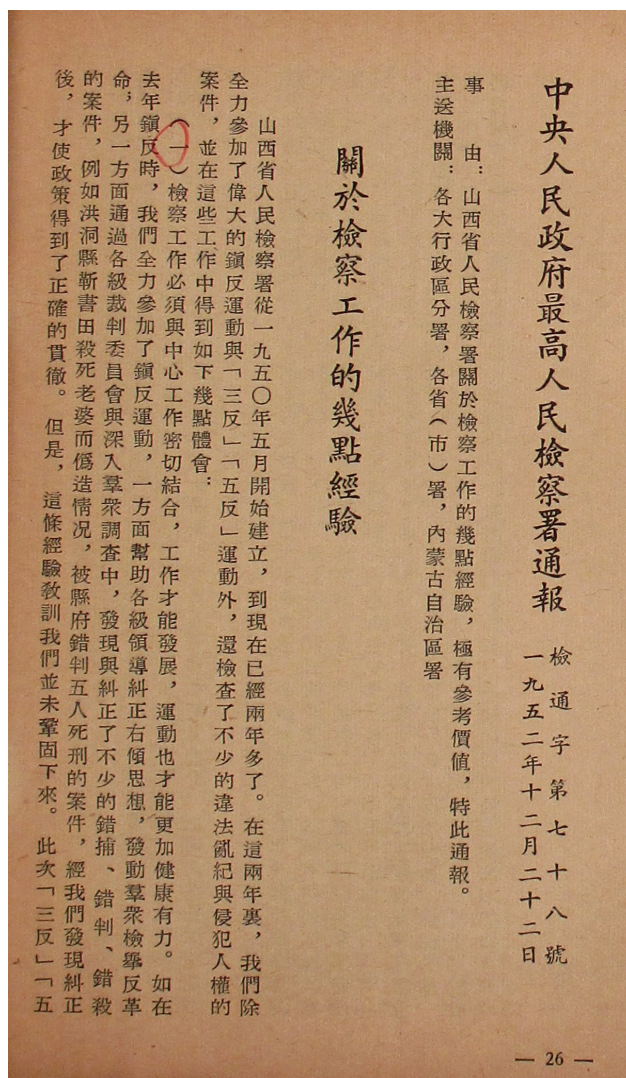 中央人民政府最高人民檢察署通報
檢通字第七十八號
一九五二年十二月二十二日
事　由：山西省人民檢察署關於檢察工作的幾點經驗，極有參考價值，特此通報。
主送機關：各大行政區分署，各省（市）署，內蒙古自治區署
關於檢察工作的幾點經驗
山西省人民檢察署從一九五〇年五月開始建立，到現在已經兩年多了。在這兩年裏，我們除
全力參加了偉大的鎭反運動與「三反」「五反」運動外，還檢查了不少的違法亂紀與侵犯人權的
案件，並在這些工作中得到如下幾點體會：
（一）檢察工作必須與中心工作密切結合，工作才能發展，運動也才能更加健康有力。如在
去年鎭反時，我們全力參加了鎭反運動，一方面幫助各級領導糾正右傾思想，發動羣衆檢舉反革
命，另一方面通過各級裁判委員會與深入羣衆調查中，發現與糾正了不少的錯捕、錯判、錯殺
的案件，例如洪洞縣靳書田殺死老婆而僞造情况，被縣府錯判五人死刑的案件，經我們發現糾正
後，才使政策得到了正確的貫徹。但是，這條經驗敎訓我們並未鞏固下來。此次「三反」「五
— 26 —